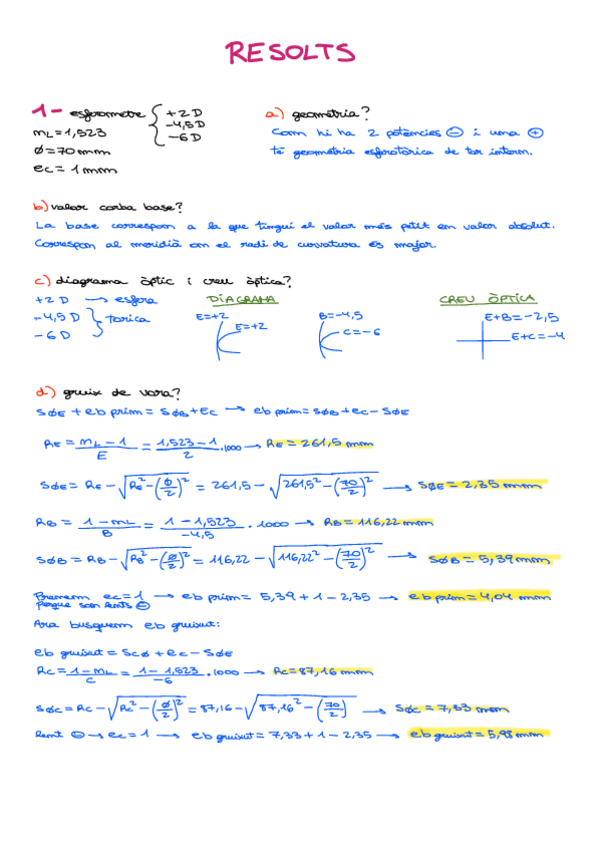 RESOLTS
1- esferometre { +2 D
-4,5D
-6 D
mL=1,523
Ø=70mm
ec=1mm
a) geometria?
Com hi ha 2 potències ⊖ i una ⊕
té geometria esferotòrica de tor intern.
b) valor corba base?
La base correspon a la que tingui el valor més petit em valor absolut.
Correspon al meridià on el radi de curvatura és major
c) diagrama òptic i creu òptica?
+2 D → esfera
-4,5 D } torica
-6 D
DIAGRAMA
E=+2
E=+2
B=-4,5
C=-6
CREU ÒPTICA
E+B=-2,5
E+C=-4
d) gruix de vora?
SØE + eb prim = SØB + ec → eb prim = SØB + ec - SØE
RE = mL - 1 / E = 1,523 - 1 / 2 · 1000 → RE = 261,5 mm
SØE = RE - √(RE² - (Ø/2)²) = 261,5 - √(261,5² - (70/2)²) → SØE = 2,35 mm
RB = 1 - mL / B = 1 - 1,523 / -4,5 · 1000 → RB = 116,22 mm
SØB = RB - √(RB² - (Ø/2)²) = 116,22 - √(116,22² - (70/2)²) → SØB = 5,39 mm
Prenem ec=1 → eb prim = 5,39 + 1 - 2,35 → eb prim = 4,04 mm
perque son lents ⊖
Ara busquem eb gruixut:
eb gruixut = SCØ + ec - SØE
RC = 1 - mL / C = 1 - 1,523 / -6 · 1000 → RC = 87,16 mm
SØC = RC - √(RC² - (Ø/2)²) = 87,16 - √(87,16² - (70/2)) → SØC = 7,33 mm
lent ⊖ → ec = 1 → eb gruixut = 7,33 + 1 - 2,35 → eb gruixut = 5,98 mm